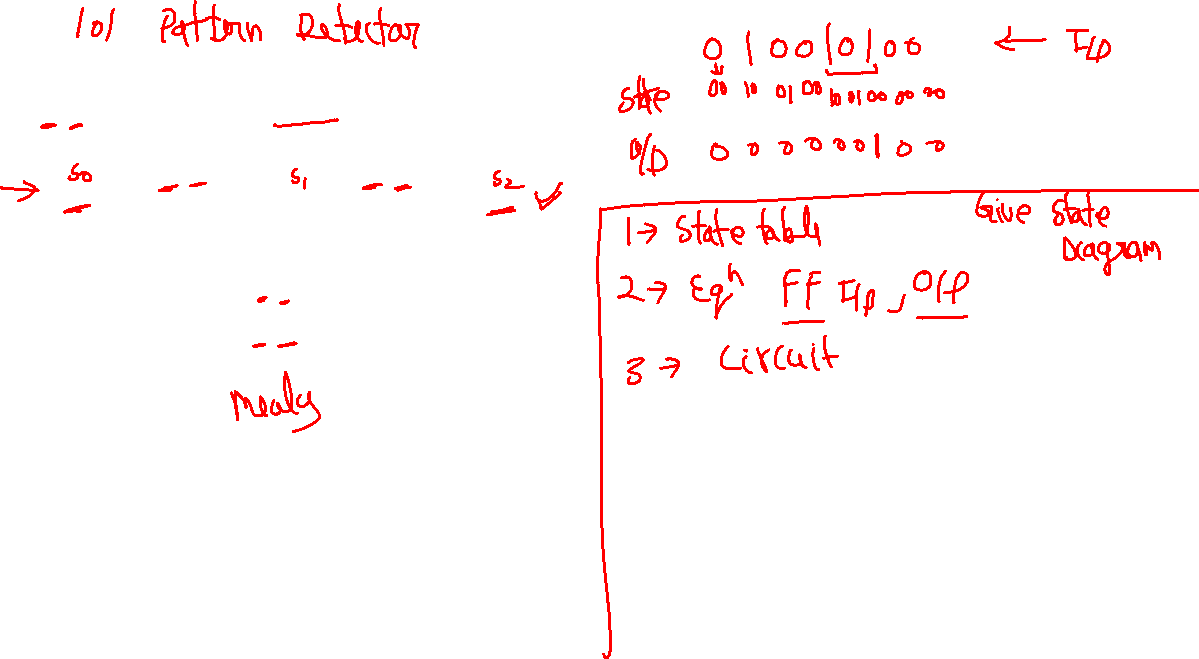 101 Pattern Detector
0 1 0 0 1 0 1 0 0 ← I/P
State 00 10 01 00 10 01 00 00 00
O/P 0 0 0 0 0 0 1 0 0
S0 S1 S2
Mealy
Give State Diagram
1→ State table
2→ Eqn FF I/p, O/P
3→ Circuit